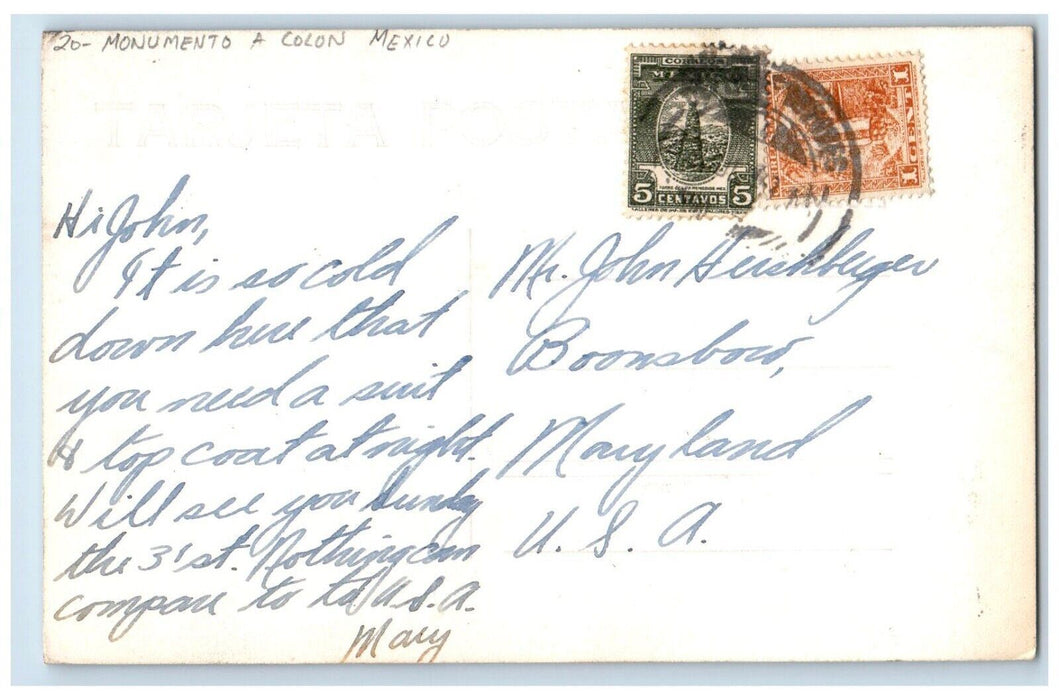 20- MONUMENTO A COLON MEXICO
CORREOS
MEXICO
5 CENTAVOS 5
1 1
Hi John,
It is so cold
down here that
you need a suit
& top coat at night.
Will see you Sunday
the 31st. Nothing can
compare to the U.S.A.
Mary
Mr. John Hershberger
Boonsboro,
Maryland
U. S. A.